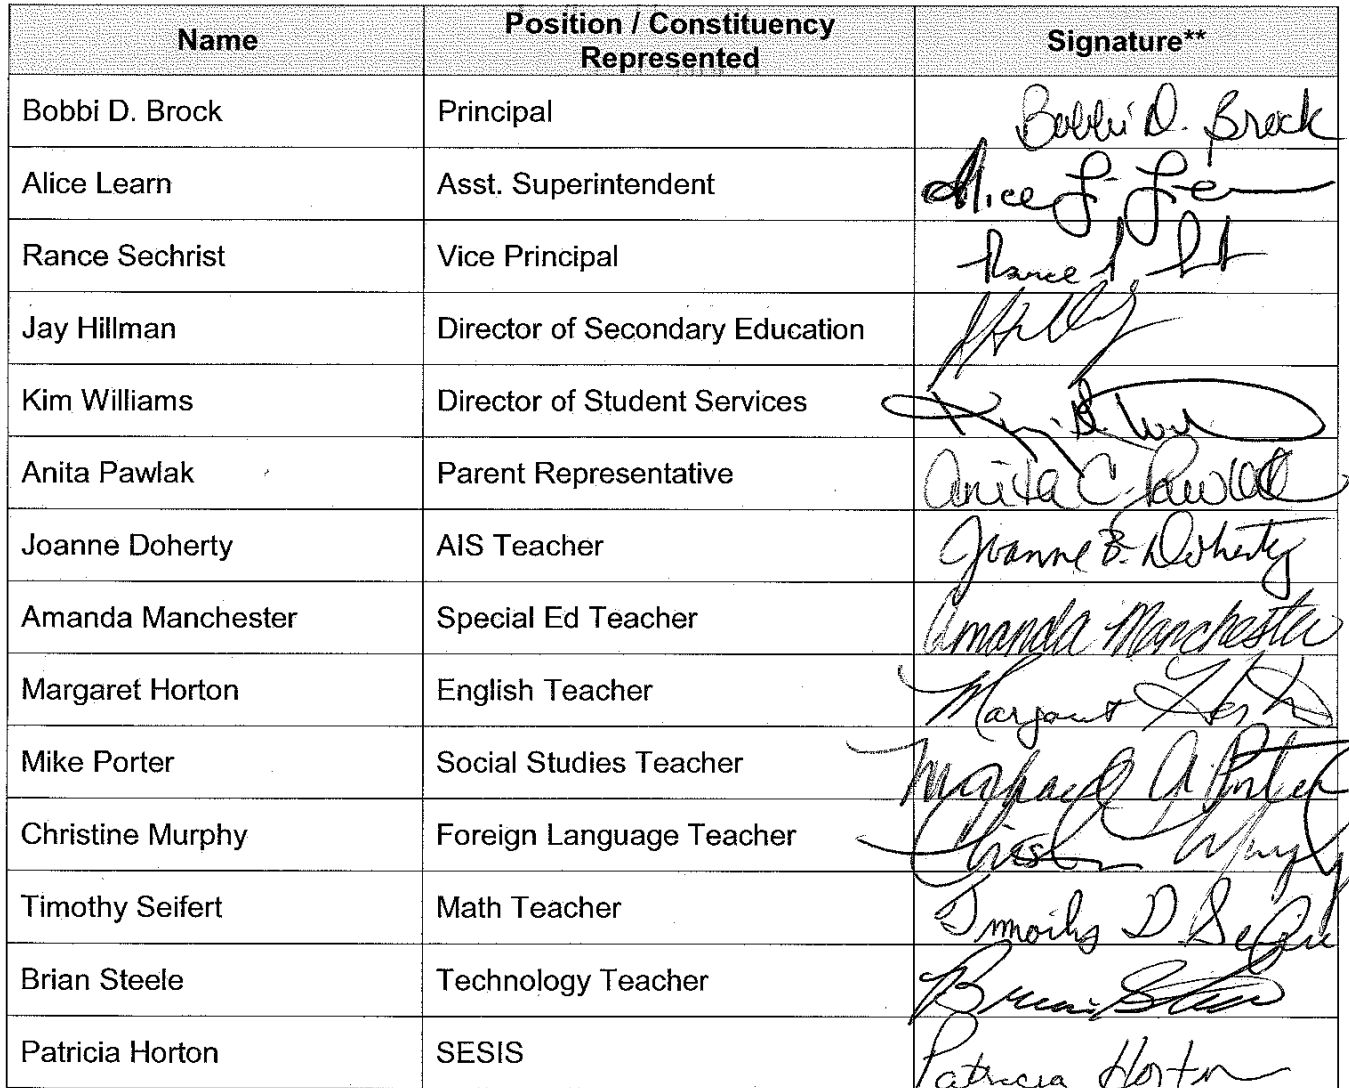 Name Position / Constituency Represented Signature**
Bobbi D. Brock Principal Bobbi D. Brock
Alice Learn Asst. Superintendent Alice
Rance Sechrist Vice Principal Rance
Jay Hillman Director of Secondary Education
Kim Williams Director of Student Services
Anita Pawlak Parent Representative Anita C. Pawlak
Joanne Doherty AIS Teacher Joanne B. Doherty
Amanda Manchester Special Ed Teacher Amanda Manchester
Margaret Horton English Teacher Margaret Horton
Mike Porter Social Studies Teacher Michael A Porter
Christine Murphy Foreign Language Teacher Murphy
Timothy Seifert Math Teacher Timothy D
Brian Steele Technology Teacher Brian Steele
Patricia Horton SESIS Patricia Horton